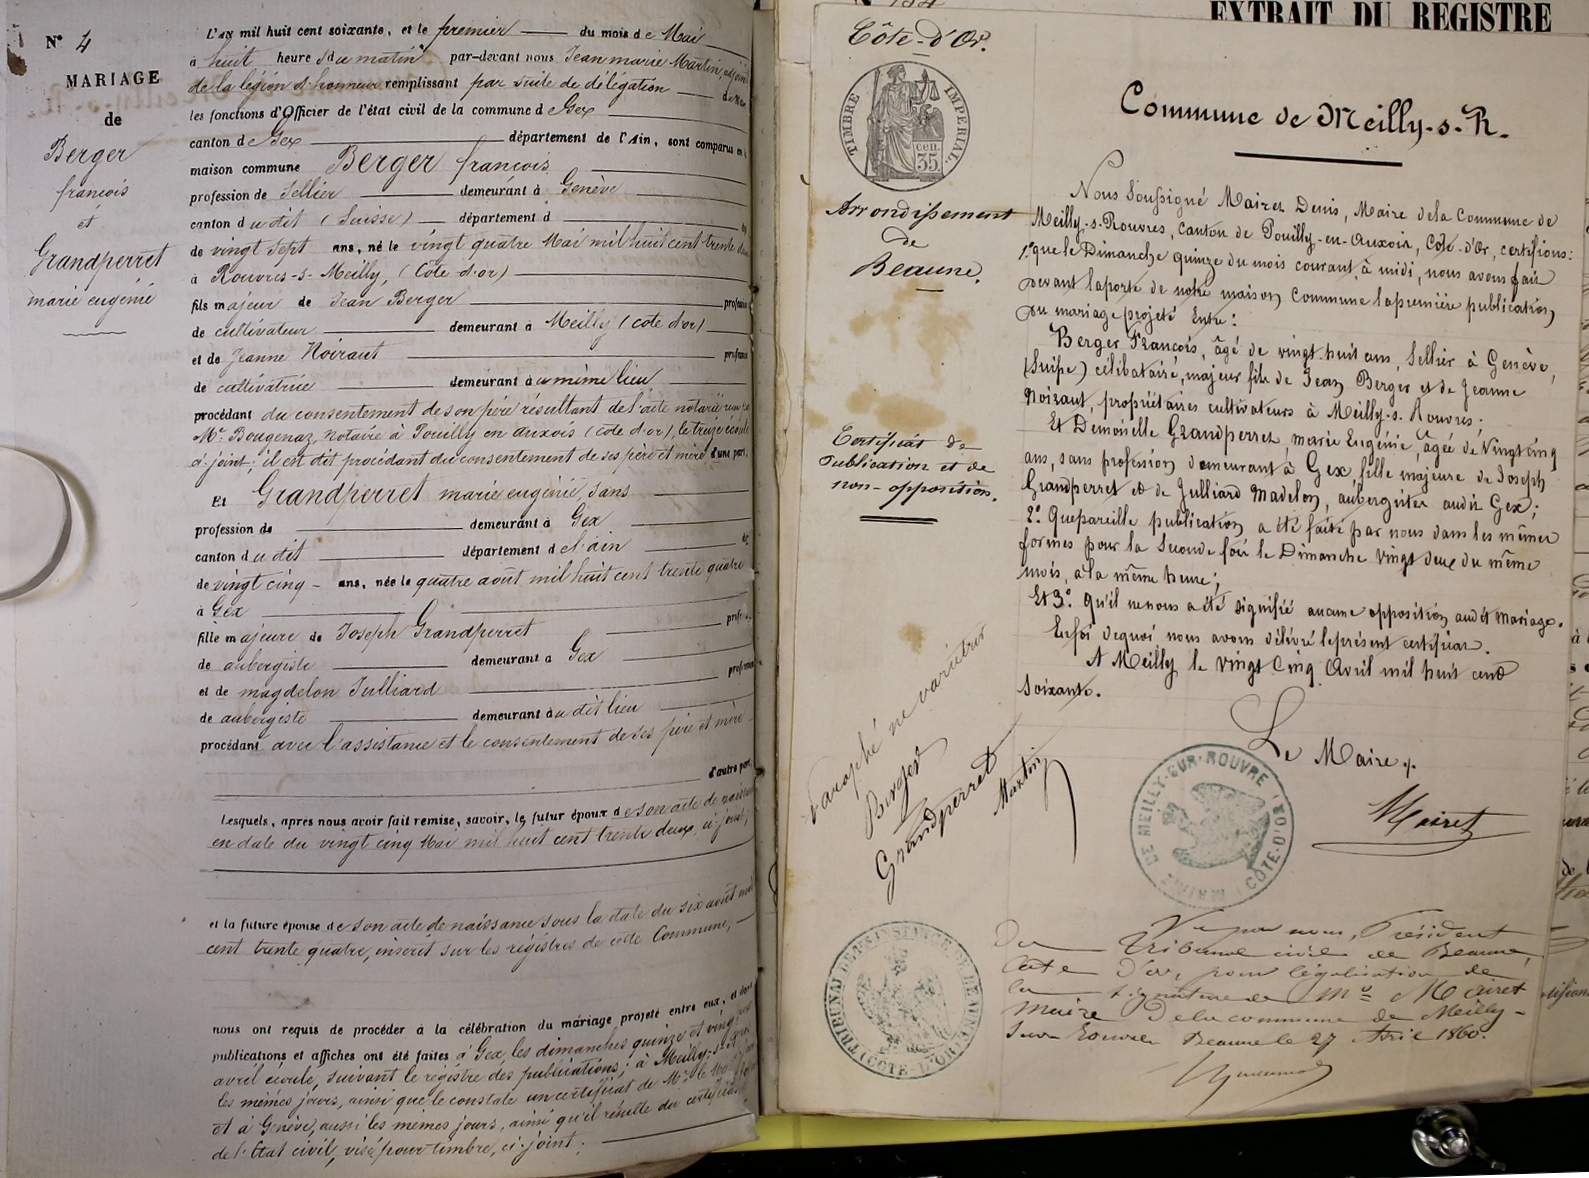 N° 4
MARIAGE
de
Berger
françois
et
Grandperret
marie eugénie
L'an mil huit cent soixante, et le premier du mois de Mai
à huit heures du matin par-devant nous Jean marie Martin, adjoint
de la légion d'honneur remplissant par suite de délégation
les fonctions d'Officier de l'état civil de la commune de Gex
canton de Gex département de l'Ain, sont comparus en la
maison commune Berger françois
profession de Sellier demeurant à Genève
canton dudit (Suisse) département d
de vingt sept ans, né le vingt quatre Mai mil huit cent trente deux
à Rouvres-s-Meilly, (Côte d'or)
fils majeur de Jean Berger profession
de cultivateur demeurant à Meilly (cote d'or)
et de Jeanne Noiraut profession
de cultivatrice demeurant au même lieu
procédant du consentement de son père résultant de l'acte notarié reçu
Me. Bougenaz, Notaire à Pouilly en auxois (côte d'or), le treize écoulé
ci-joint; il est dit procédant du consentement de ses père et mère d'une part,
Et Grandperret marie eugénie, sans
profession de demeurant à Gex
canton dudit département de l'ain
de vingt cinq ans, née le quatre août mil huit cent trente quatre
à Gex
fille majeure de Joseph Grandperret profession
de aubergiste demeurant à Gex
et de magdelon Julliard profession
de aubergiste demeurant audit lieu
procédant avec l'assistance et le consentement de ses père et mère
d'autre part,
Lesquels, après nous avoir fait remise, savoir, le futur époux de son acte de naissance
en date du vingt cinq Mai mil huit cent trente deux, ci-joint,
et la future épouse de son acte de naissance sous la date du six août mil
cent trente quatre, inscrit sur les registres de cette Commune,
nous ont requis de procéder à la célébration du mariage projeté entre eux, et dont
publications et affiches ont été faites à Gex, les dimanches quinze et vingt
avril écoulé, suivant le registre des publications; à Meilly-s-R
les mêmes jours, ainsi que le constate un certificat de Mr. le
et à Genève, aussi les mêmes jours, ainsi qu'il résulte du certificat
de l'Etat civil, visé pour timbre, ci-joint;
EXTRAIT DU REGISTRE
Côte-d'Or.
TIMBRE IMPERIAL
35 cen.
Arrondissement
de
Beaune.
Certificat de
publication et de
non-opposition.
Commune de Meilly-s-R.
Nous Soussigné Mairet Denis, Maire de la Commune de
Meilly-s-Rouvres, canton de Pouilly-en-Auxois, Côte-d'Or, certifions:
1° que le Dimanche quinze du mois courant, à midi, nous avons fait
devant la porte de notre maison Commune la première publication
du mariage projeté Entre:
Berger François, âgé de vingt-huit ans, Sellier à Genève,
(Suisse) célibataire, majeur fils de Jean Berger et de Jeanne
Noizaut, propriétaires cultivateurs à Meilly-s. Rouvres;
Et Demoiselle Grandperret marie Eugénie, âgée de Vingt cinq
ans, sans profession demeurant à Gex, fille majeure de Joseph
Grandperret et de Julliard Madelon, aubergistes audit Gex;
2° Que pareille publication a été faite par nous dans les mêmes
formes pour la Seconde fois le Dimanche vingt deux du même
mois, à la même heure;
Et 3° qu'il ne nous a été signifié aucune opposition audit Mariage.
En foi de quoi nous avons délivré le présent certificat.
A Meilly le vingt Cinq Avril mil huit cent
Soixante.
Le Maire,
Mairet
MAIRIE DE MEILLY-SUR-ROUVRE (CÔTE-D'OR)
Paraphé ne varietur
Berger
Grandperret
Martin
TRIBUNAL DE 1ère INSTANCE DE BEAUNE (CÔTE-D'OR)
Vu par nous, Président
Du Tribunal civil de Beaune,
Côte d'or, pour légalisation de
la signature de Mr Mairet
Maire de la commune de Meilly-
sur Rouvre Beaune le 27 Avril 1860.